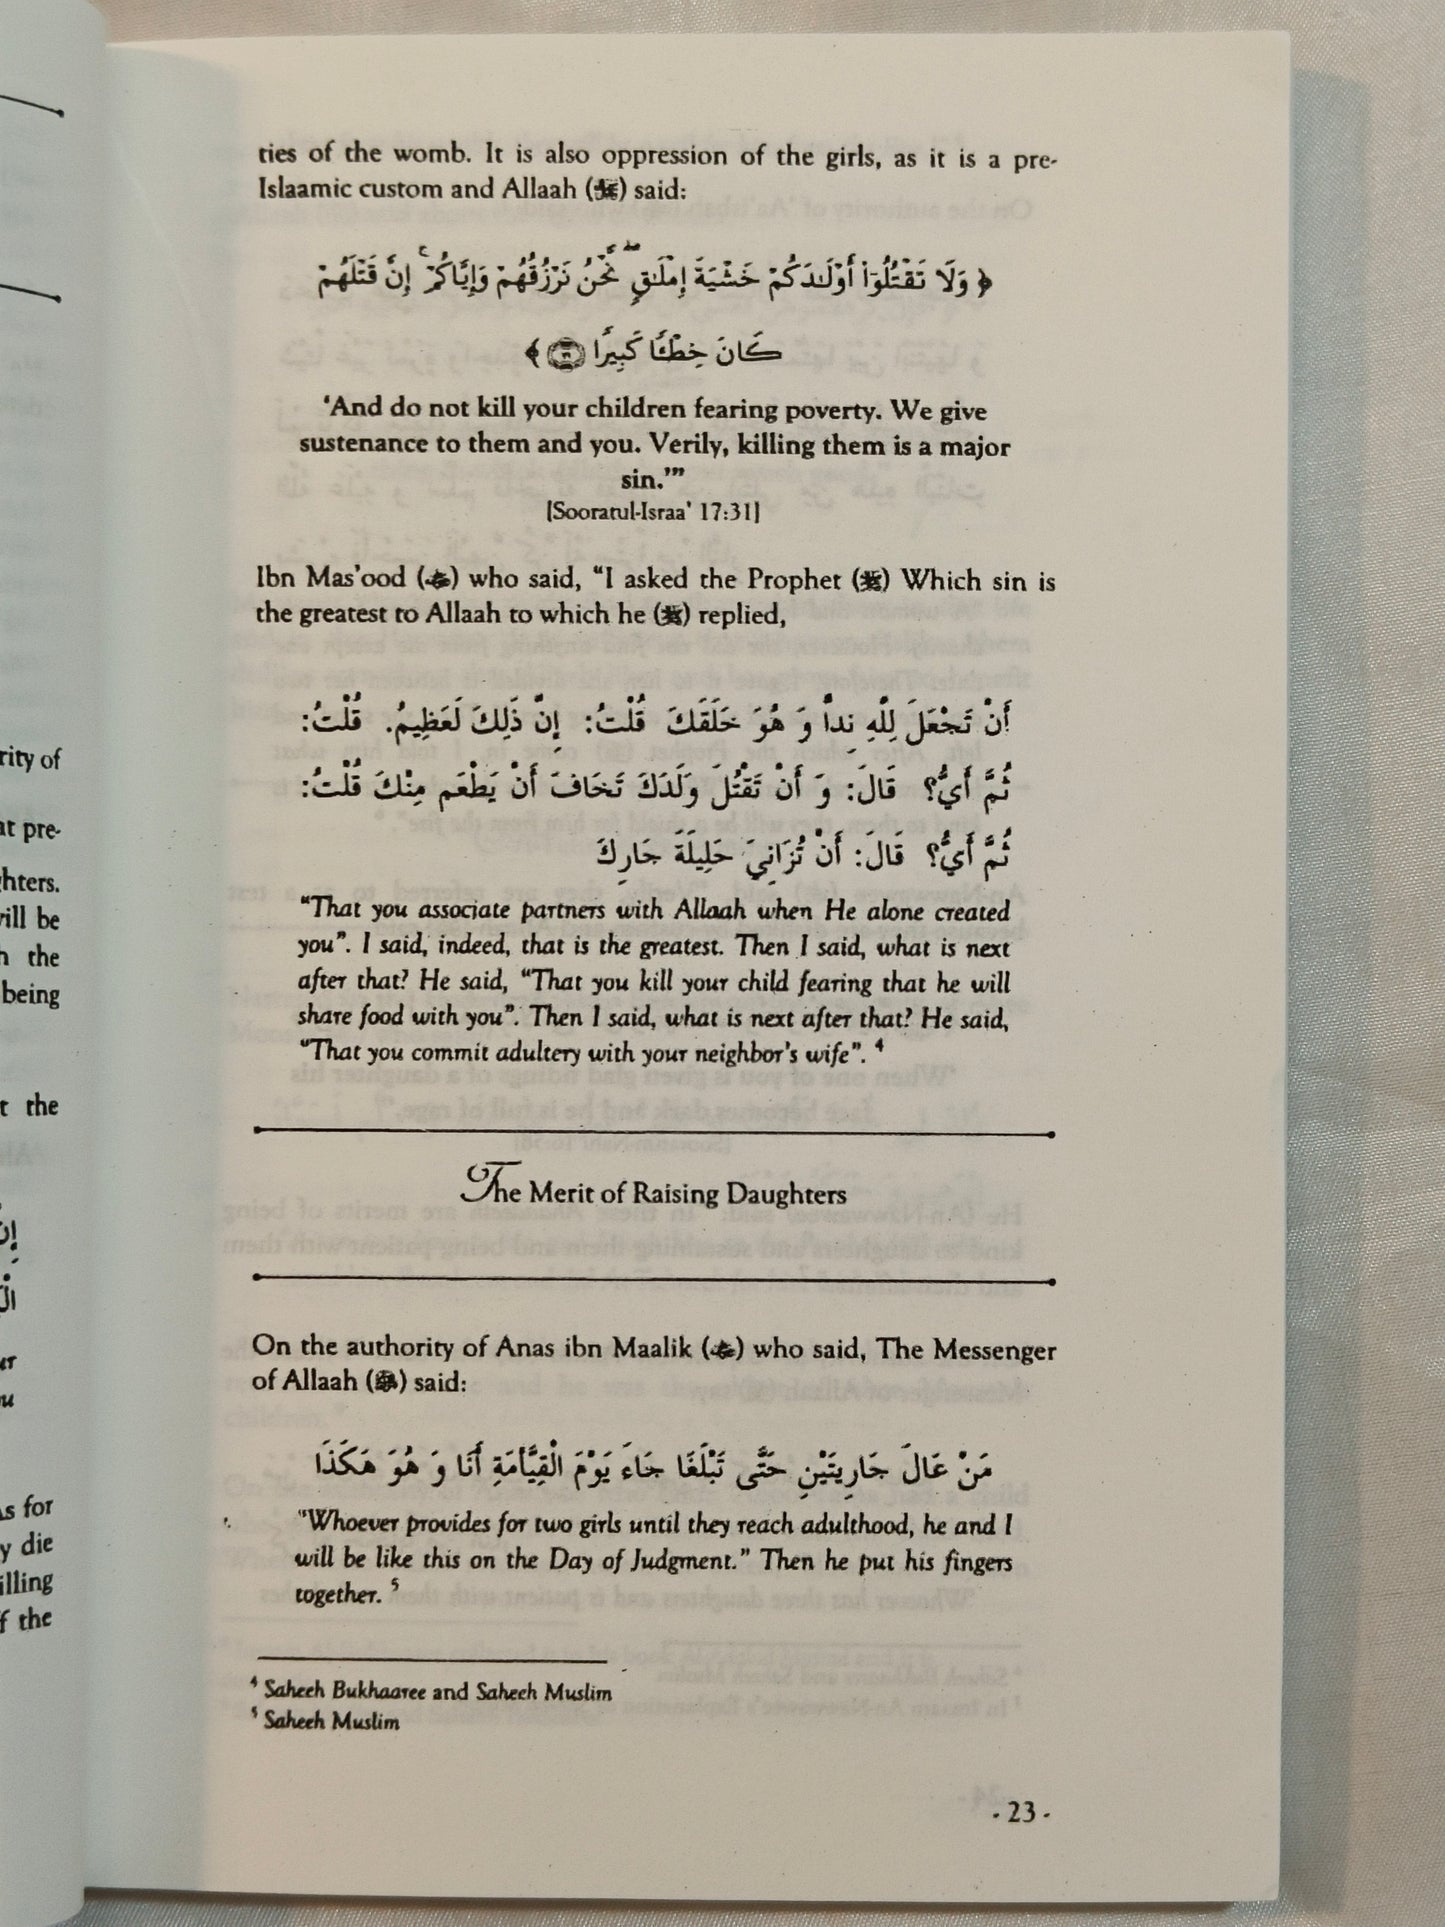 ties of the womb. It is also oppression of the girls, as it is a pre-
Islaamic custom and Allaah (ﷻ) said:
﴿ وَلَا تَقْتُلُوٓا۟ أَوْلَـٰدَكُمْ خَشْيَةَ إِمْلَـٰقٍ ۖ نَّحْنُ نَرْزُقُهُمْ وَإِيَّاكُمْ ۚ إِنَّ قَتْلَهُمْ
كَانَ خِطْـًٔا كَبِيرًا ٣١ ﴾
‘And do not kill your children fearing poverty. We give
sustenance to them and you. Verily, killing them is a major
sin.’”
[Sooratul-Israa’ 17:31]
Ibn Mas’ood (﵁) who said, “I asked the Prophet (ﷺ) Which sin is
the greatest to Allaah to which he (ﷺ) replied,
أَنْ تَجْعَلَ لِلَّهِ نِداً وَ هُوَ خَلَقَكَ قُلْتُ: إِنَّ ذَلِكَ لَعَظِيمُ. قُلْتُ:
ثُمَّ أَيُّ؟ قَالَ: وَ أَنْ تَقْتُلَ وَلَدَكَ تَخَافَ أَنْ يَطْعَم مِنْكَ قُلْتُ:
ثُمَّ أَيُّ؟ قَالَ: أَنْ تُزَانِيَ حَلِيلَةَ جَارِكَ
“That you associate partners with Allaah when He alone created
you”. I said, indeed, that is the greatest. Then I said, what is next
after that? He said, “That you kill your child fearing that he will
share food with you”. Then I said, what is next after that? He said,
“That you commit adultery with your neighbor’s wife”. ⁴
The Merit of Raising Daughters
On the authority of Anas ibn Maalik (﵁) who said, The Messenger
of Allaah (ﷺ) said:
مَنْ عَالَ جَارِيَتَيْنِ حَتَّى تَبْلَغَا جَاءَ يَوْمَ الْقِيَّامَةِ أَنَا وَ هُوَ هَكَذَا
“Whoever provides for two girls until they reach adulthood, he and I
will be like this on the Day of Judgment.” Then he put his fingers
together. ⁵
⁴ Saheeh Bukhaaree and Saheeh Muslim
⁵ Saheeh Muslim
- 23 -